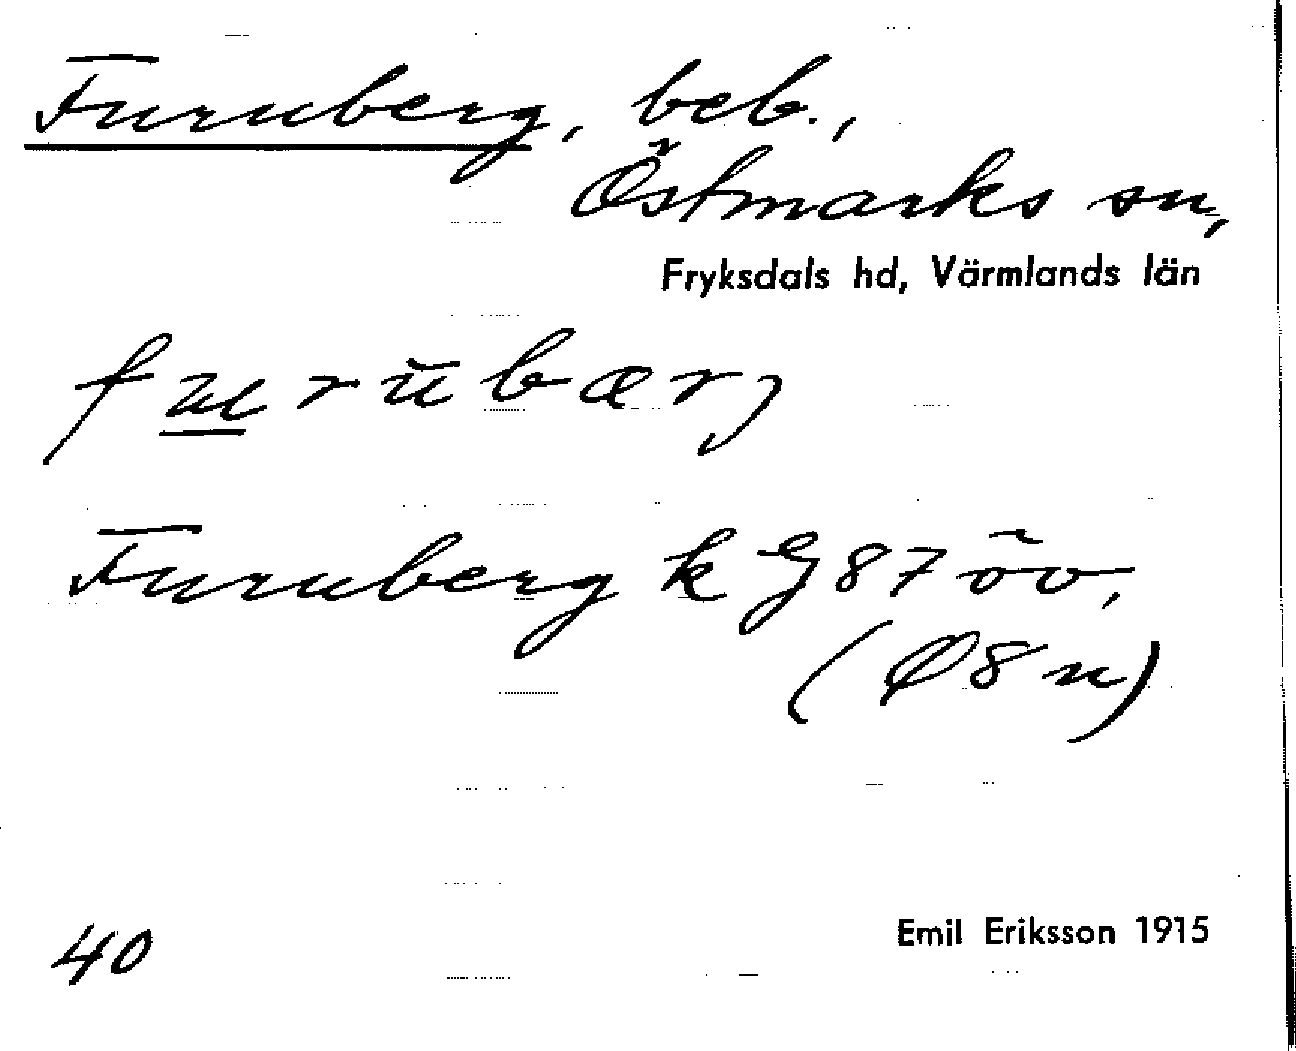 Furuberg, beb.,
Östmarks sn,
Fryksdals hd, Värmlands län
furŭbærj
Furuberg k G 87 öv,
(Ø8n)
40
Emil Eriksson 1915